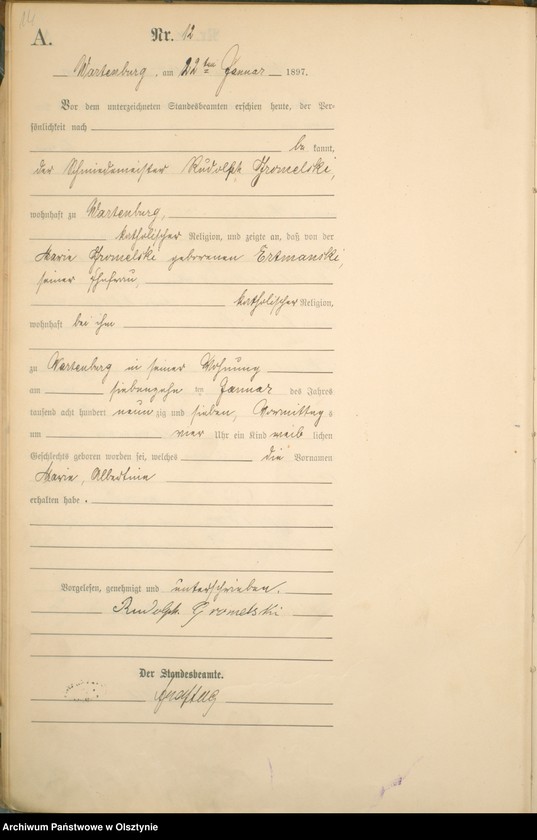 14
A.
Nr. 12
Wartenburg, am 22ten Januar 1897.
Vor dem unterzeichneten Standesbeamten erschien heute, der Per-
sönlichkeit nach
be kannt,
der Schmiedemeister Rudolph Gromelski,
wohnhaft zu Wartenburg,
katholischer Religion, und zeigte an, daß von der
Marie Gromelski geborenen Ertmanski,
seiner Ehefrau,
katholischer Religion,
wohnhaft bei ihm
zu Wartenburg in seiner Wohnung
am siebenzehn ten Januar des Jahres
tausend acht hundert neun zig und sieben, Vormittag s
um vier Uhr ein Kind weib lichen
Geschlechts geboren worden sei, welches die Vornamen
Marie, Albertine
erhalten habe.
Vorgelesen, genehmigt und unterschrieben.
Rudolph Gromelski
Der Standesbeamte.
Archiwum Państwowe w Olsztynie